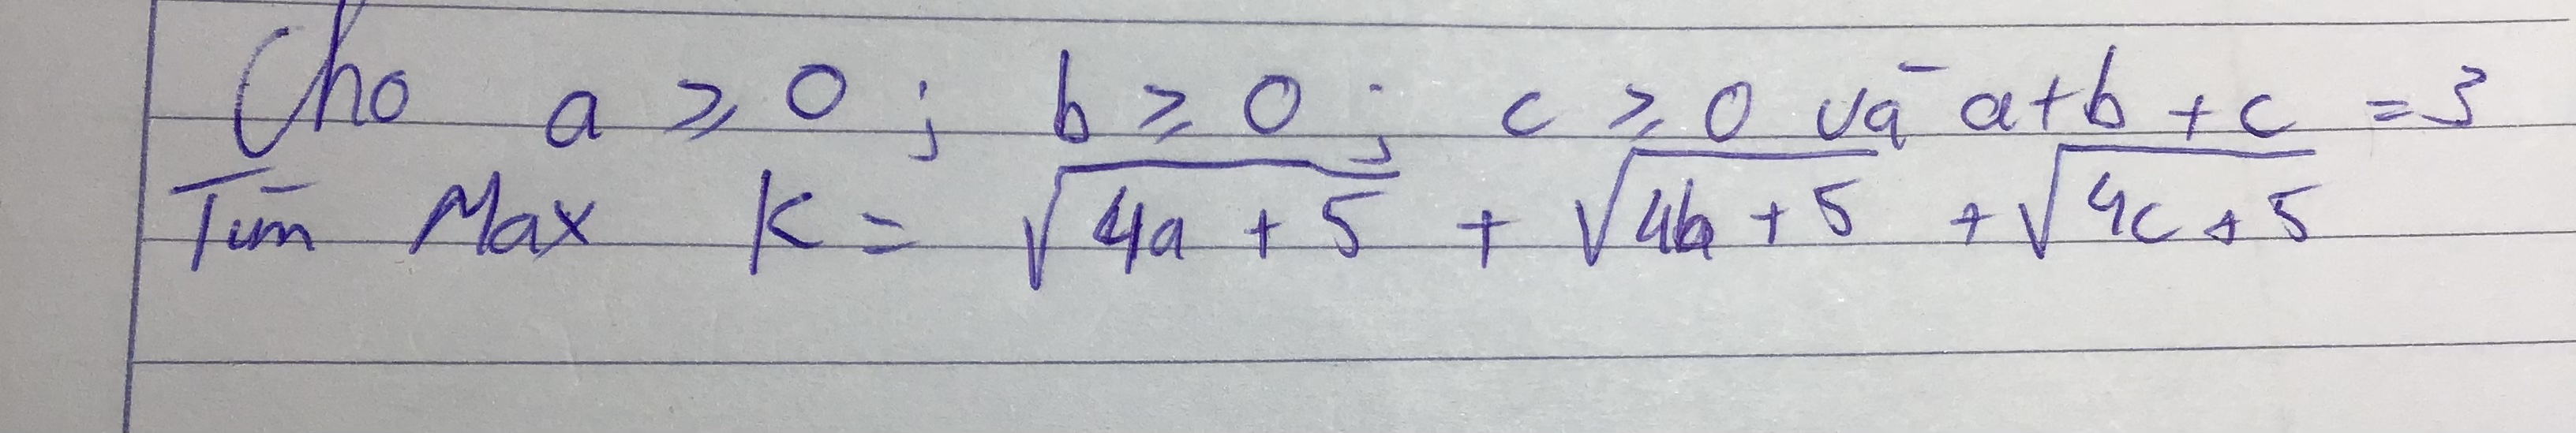 Cho a ≥ 0 ; b ≥ 0 ; c ≥ 0 và a+b+c = 3
Tìm Max K = √(4a + 5) + √(4b + 5) + √(4c + 5)